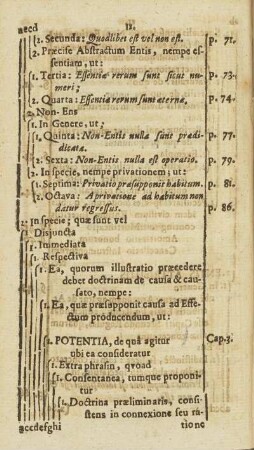 necd 12.
1. Secunda: Quodlibet est vel non est. p. 71.
2. Præcise Abstractum Entis, nempe essentiam, ut:
1. Tertia: Essentiæ rerum sunt sicut numeri; p. 73.
2. Quarta: Essentiæ rerum sunt æternæ. p. 74.
2. Non-Ens
1. In Genere, ut;
1. Quinta: Non-Entis nulla sunt prædicata. p. 77.
2. Sexta: Non-Entis nulla est operatio. p. 79.
2. In specie, nempe privationem; ut:
1. Septima: Privatio præsupponit habitum. p. 81.
2. Octava: A privatione ad habitum non datur regressus. p. 86.
2. In specie; quæ sunt vel
1. Disjuncta
1. Immediata
1. Respectiva
1. Ea, quorum illustratio præcedere debet doctrinam de causa & causato, nempe:
1. Ea, quæ præsupponit causa ad Effectum producendum, ut:
1. POTENTIA, de quâ agitur ubi ea consideratur Cap. 3.
1. Extra phrasin, qvoad
1. Consentanea, tumque proponitur
1. Doctrina præliminaris, consistens in connexione seu ra-
accdefghi tione